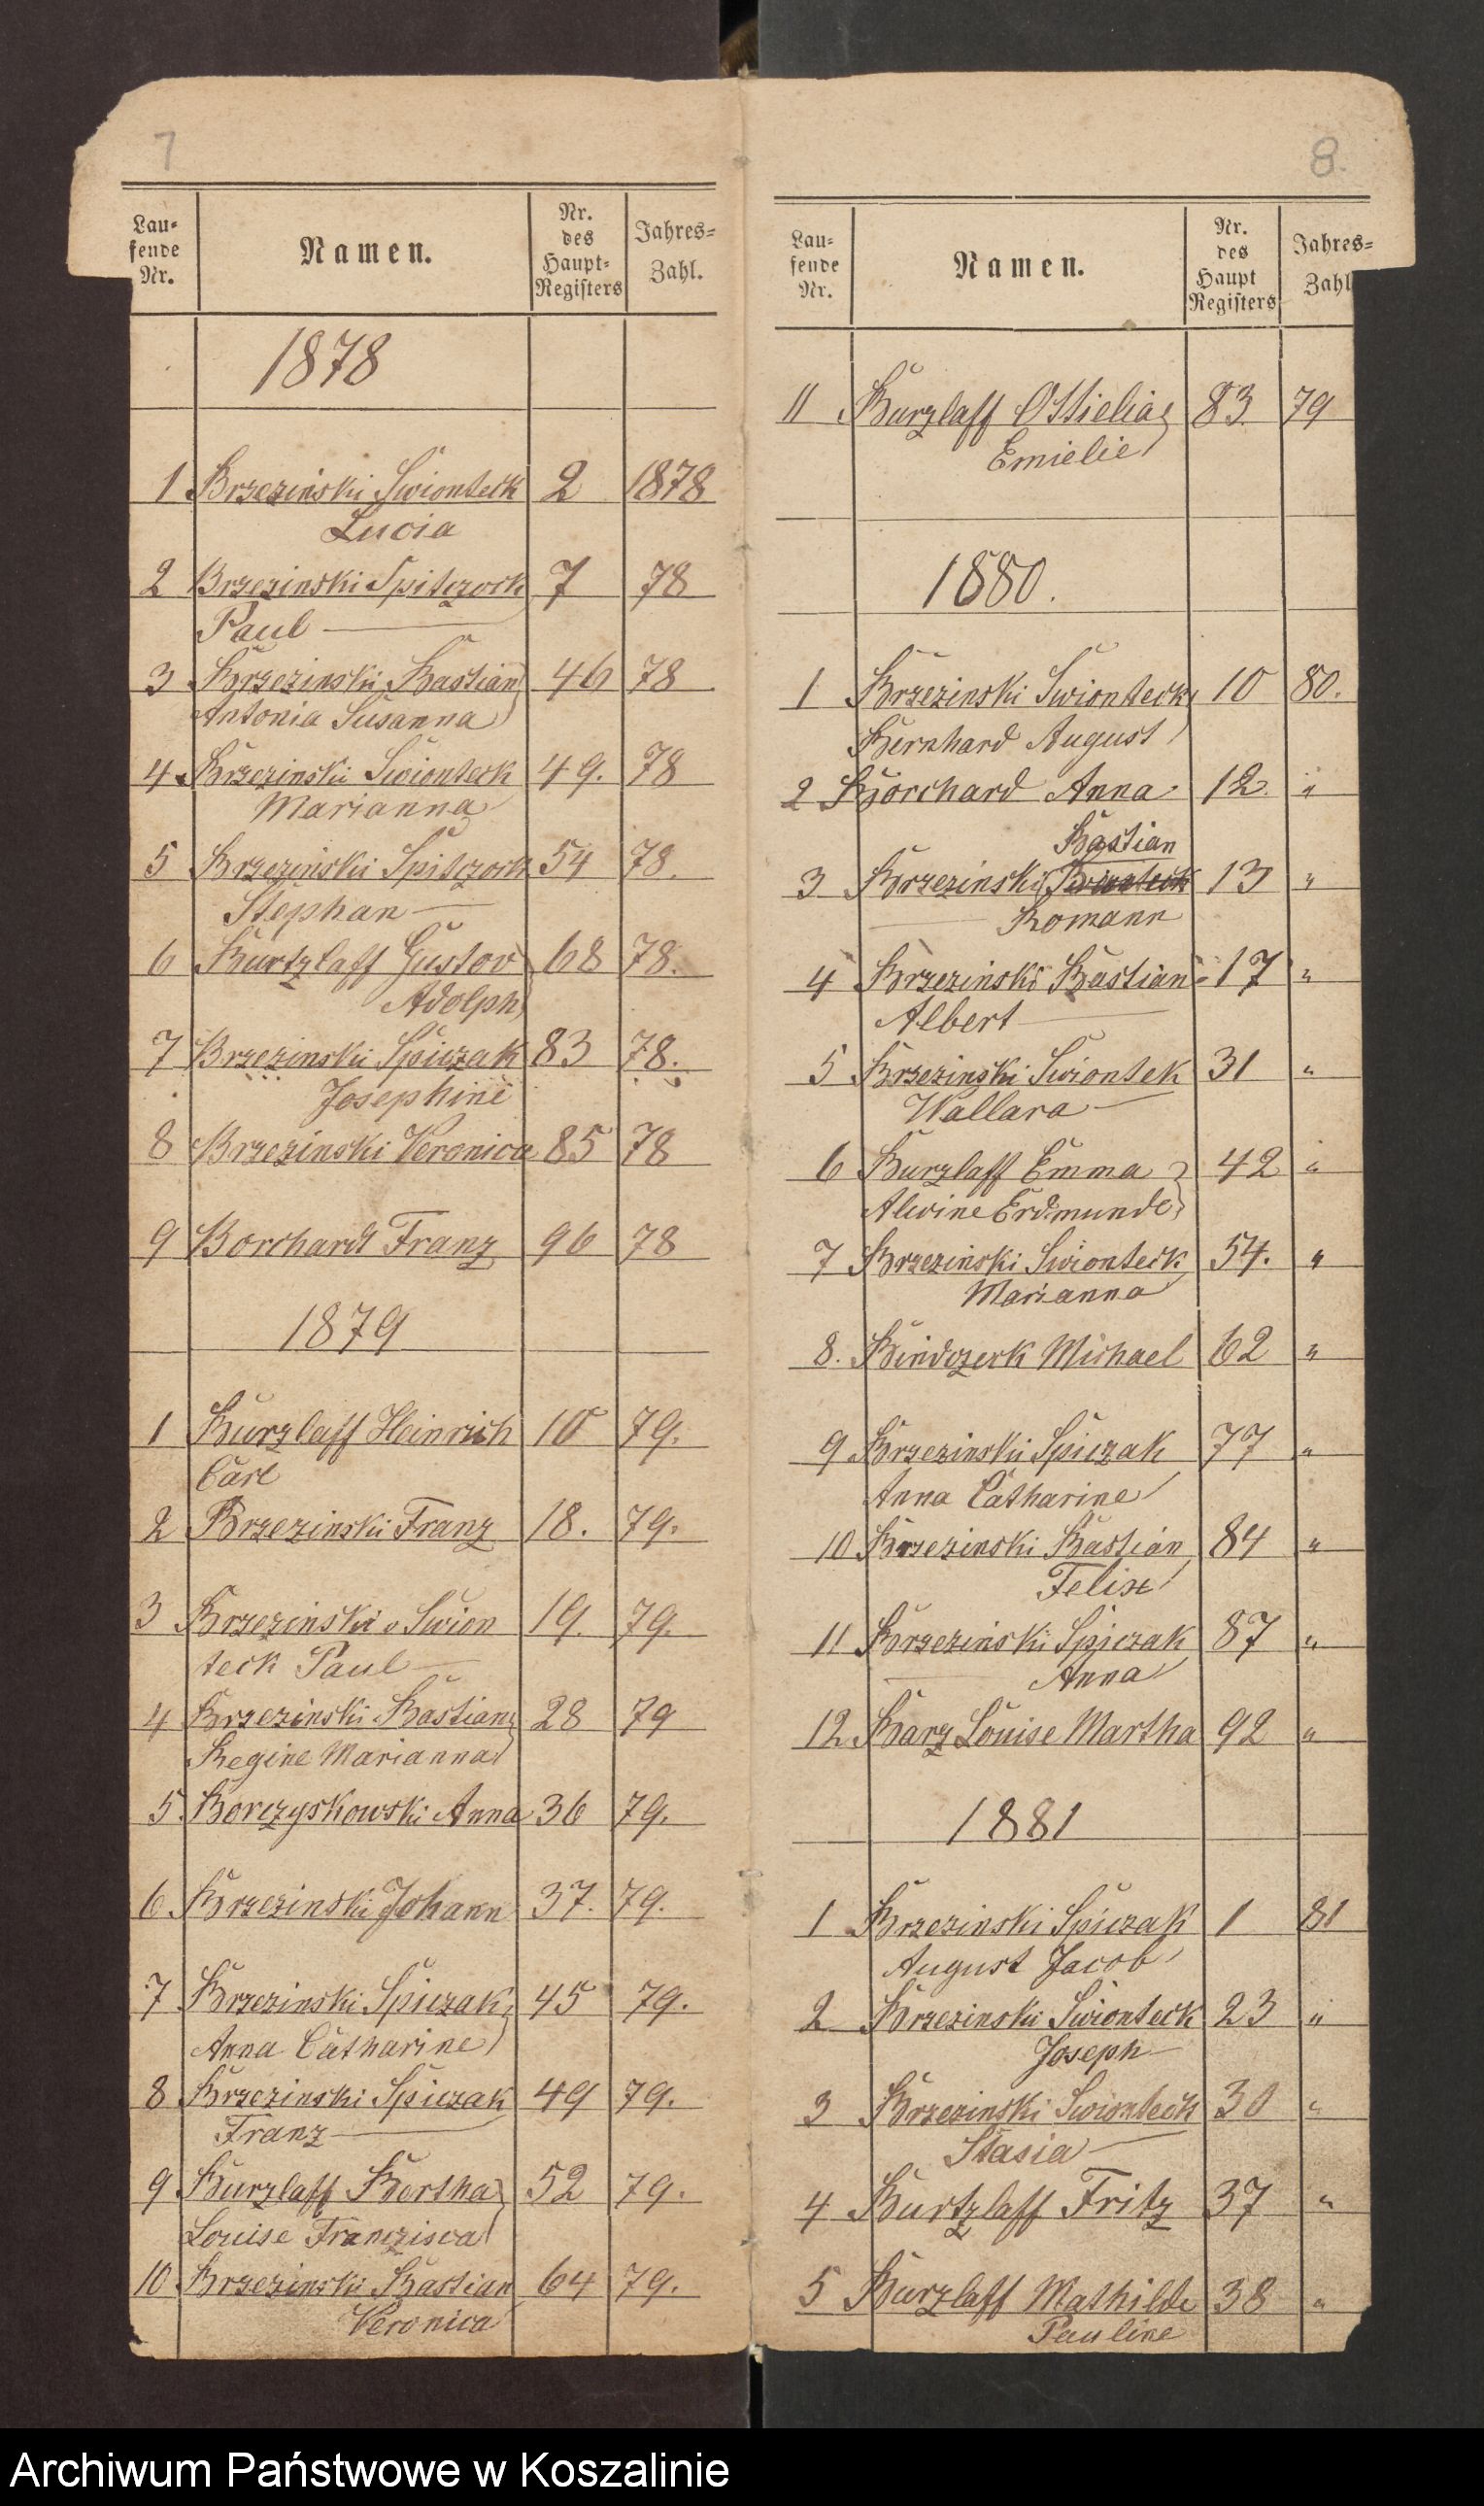 7
Lau-
fende
Nr.
Namen.
Nr.
des
Haupt-
Registers
Jahres-
Zahl.
1878
1 Brzezinski Swionteck 2 1878
Lucia
2 Brzezinski Spitczock 7 78
Paul
3 Brzezinski Bastian 46 78
Antonia Susanna
4 Brzezinski Swionteck 49. 78
Marianna
5 Brzezinski Spitczock 54 78.
Stephan
6 Burtzlaff Gustov 68 78.
Adolph
7 Brzezinski Spiczak 83 78.
Josephine
8 Brzezinski Veronica 85 78
9 Borchardt Franz 96 78
1879
1 Burzlaff Heinrich 10 79.
Carl
2 Brzezinski Franz 18. 79.
3 Brzezinski Swion 19. 79.
teck Paul
4 Brzezinski Bastian 28 79
Regine Marianna
5 Borczyskowski Anna 36 79.
6 Brzezinski Johann 37. 79.
7 Brzezinski Spiczak 45 79.
Anna Catharine
8 Brzezinski Spiczak 49 79.
Franz
9 Burzlaff Bertha 52 79.
Louise Franzisca
10 Brzezinski Bastian 64 79.
Veronica
8.
Lau-
fende
Nr.
Namen.
Nr.
des
Haupt
Registers
Jahres-
Zahl
11 Burzlaff Ottielia 83 79
Emielie
1880.
1 Brzezinski Swionteck 10 80.
Bernhard August
2 Borchard Anna 12. "
Bastian
3 Brzezinski 13 "
Romann
4 Brzezinski Bastian 17 "
Albert
5 Brzezinski Swiontek 31 "
Wallara
6 Burzlaff Emma 42 "
Alwine Erdmunde
7 Brzezinski Swionteck 54. "
Marianna
8. Bindczeck Michael 62 "
9 Brzezinski Spiczak 77 "
Anna Catharine
10 Brzezinski Bastian 84 "
Felix
11 Brzezinski Spiczak 87 "
Anna
12 Barz Louise Martha 92 "
1881
1 Brzezinski Spiczak 1 81
August Jacob
2 Brzezinski Swionteck 23 "
Joseph
3 Brzezinski Swionteck 30 "
Stasia
4 Burtzlaff Fritz 37 "
5 Burzlaff Mathilde 38 "
Pauline
Archiwum Państwowe w Koszalinie